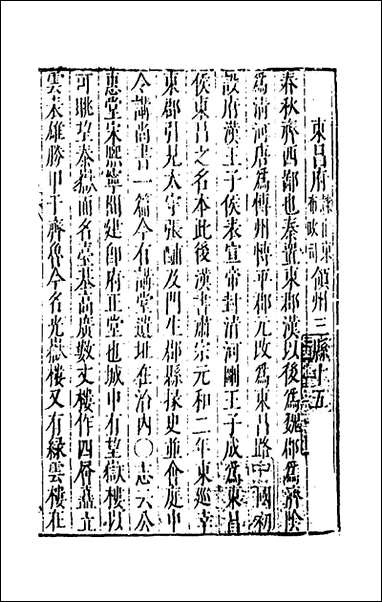 東昌府隸山東布政司領州三縣十五
春秋齊西鄙也秦置東郡漢以後為魏郡為濟陰
為清河唐為博州博平郡元改為東昌路中國初
設府漢王子侯表宣帝封清河剛王子成為東昌
侯東昌之名本此後漢書肅宗元和二年東巡幸
東郡引見太守張酺及門生郡縣掾史並會庭中
令講尚書一篇今有講堂遺址在治內○志云公
惠堂宋熙寧間建即府正堂也城中有望嶽樓以
可眺望泰嶽而名臺基高廣數丈樓作四層蓋立
雲表雄勝甲于齊魯今名光嶽樓又有綠雲樓在